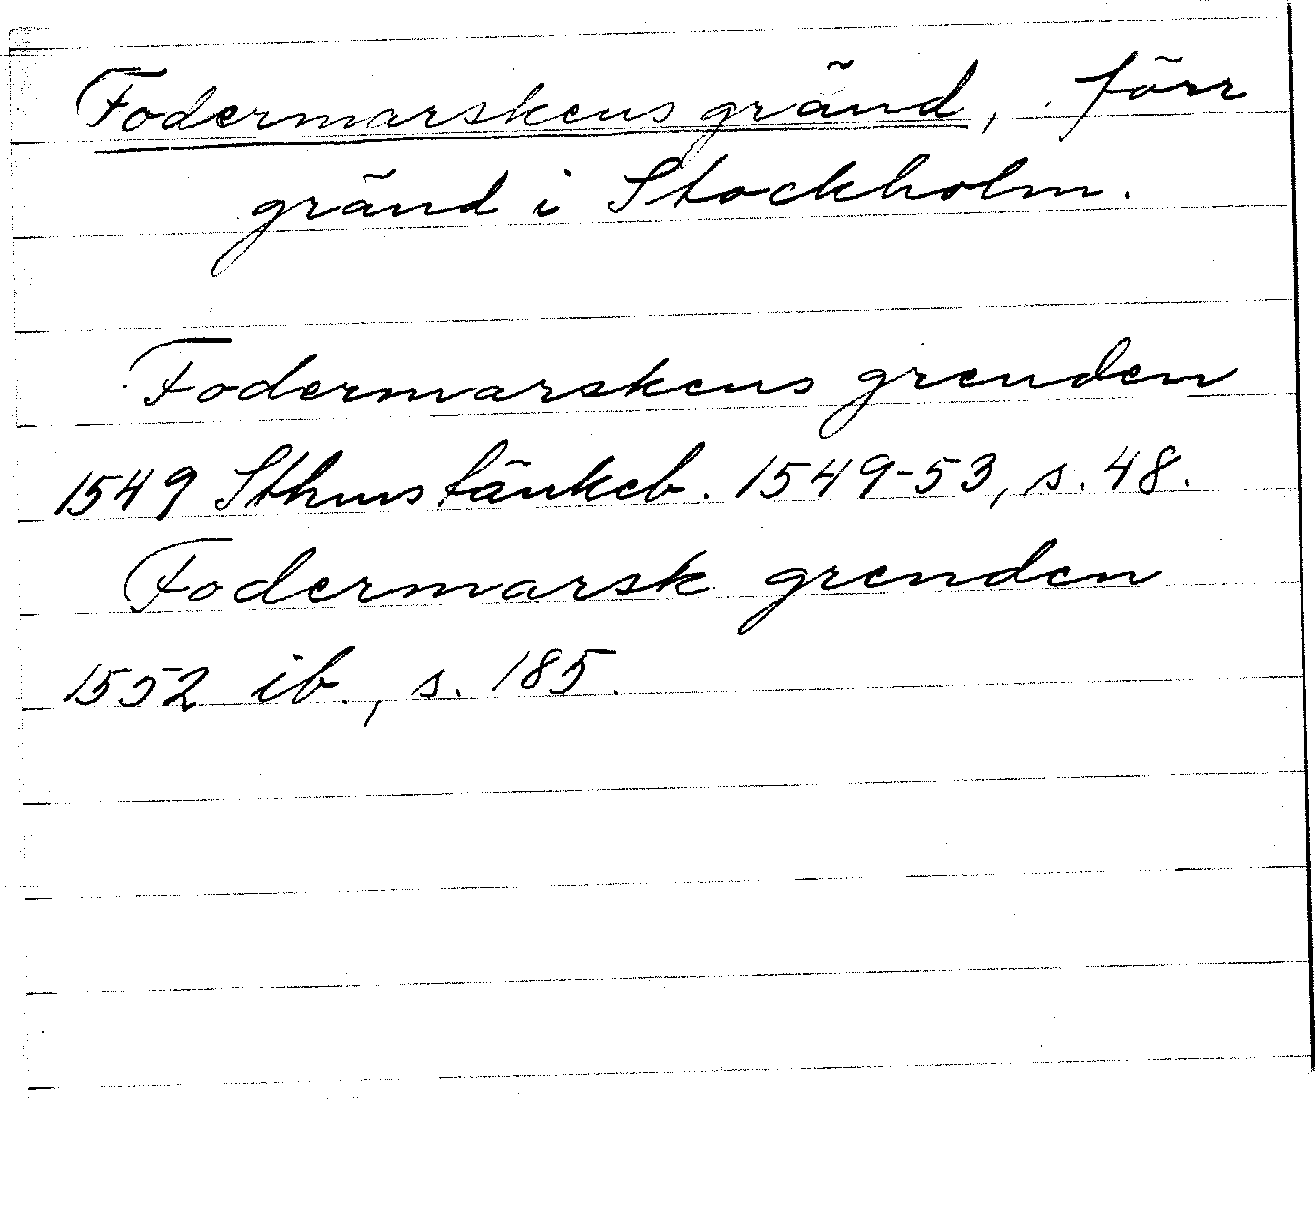 Fodermarskens gränd, förr
gränd i Stockholm.
Fodermarskens grenden
1549 Sthms tänkeb. 1549-53, s. 48.
Fodermarsk grenden
1552 ib., s. 185.